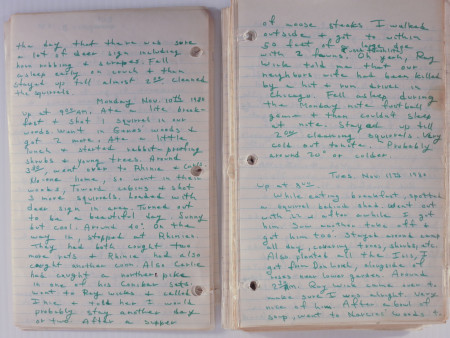 the day that there was sure
a lot of deer sign including
horn rubbing & scrapes. Fell
asleep early on couch & then
stayed up till almost 2 cleaned
the squirrels.
Monday Nov. 10th 1980
up at 9 AM. Ate a lite break-
fast & shot 1 squirrel in our
woods. Went in woods &
got 2 more. Ate a little
lunch & started rabbit proofing
shrubs & young trees. Around
2, went over to Rhinie &
home, so went in their
woods, Toward cabins & shot
3 more squirrels, loaded with
deer sign in area. Turned out
to be a beautiful day. Sunny
but cool. Around 40°. On the
way in, stopped at Rhinies.
They had both caught two
more rats & Rhinie had also
caught another coon. Also
had caught a northern pike
in one of his Conibear sets.
Went to Ray Wicks & called
& told her I would
probably stay another day
or two. After a supper
of moose steaks I walked
outside & got to within
50 feet of
with 2 fawns. Oh yeah, Ray
Wick told me that our
neighbors wife had been killed
by a hit & run driver in
Chicago. Fell asleep during
the Monday nite football
game & then couldn't sleep
at nite. Stayed up till
2 cleaning squirrels. Very
cold out tonite. Probably
around 20° or colder.
Tues Nov. 11th 1980
up at 8
While eating breakfast, spotted
a squirrel behind shed. Went out
with .22 & after awhile I got
him. Saw another take off &
got him too. Stayed around camp
all day, covering trees, shrubs, etc.
Also, planted all the Iris, I
got from , alongside of
house near garden. Around
2 PM. Ray Wick came over to
make sure I was alright. Very
nice of him. After a bowl of
soup, went to woods &